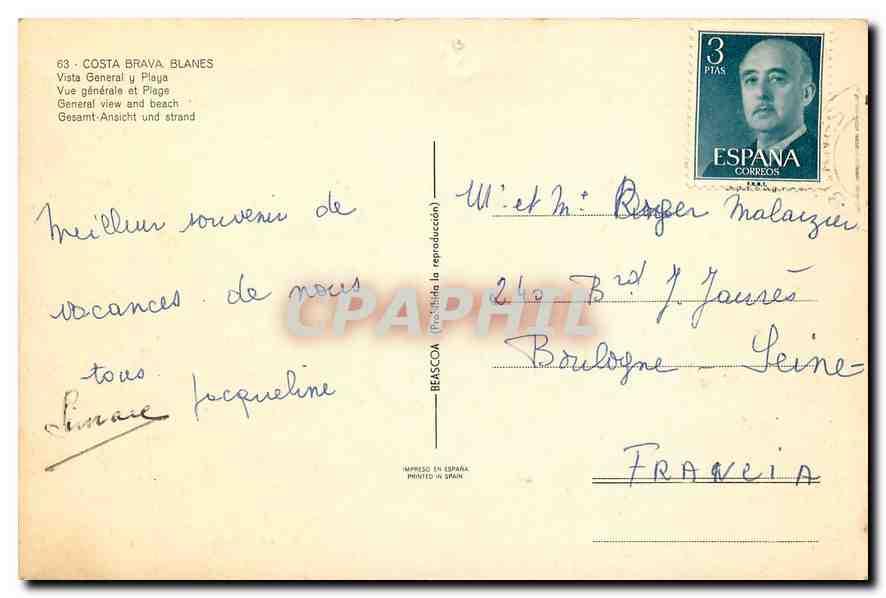 63 - COSTA BRAVA. BLANES
Vista General y Playa
Vue générale et Plage
General view and beach
Gesamt-Ansicht und strand
3
PTAS
ESPAÑA
CORREOS
F.N.M.T.
Meilleur souvenir de
vacances de nous
tous.
Jacqueline
BEASCOA (Prohibida la reproducción)
IMPRESO EN ESPAÑA
PRINTED IN SPAIN
Mr et Me Roger Malaizier
240 Brd J. Jaurès
Boulogne - Seine =
FRANCIA
CPAPHIL